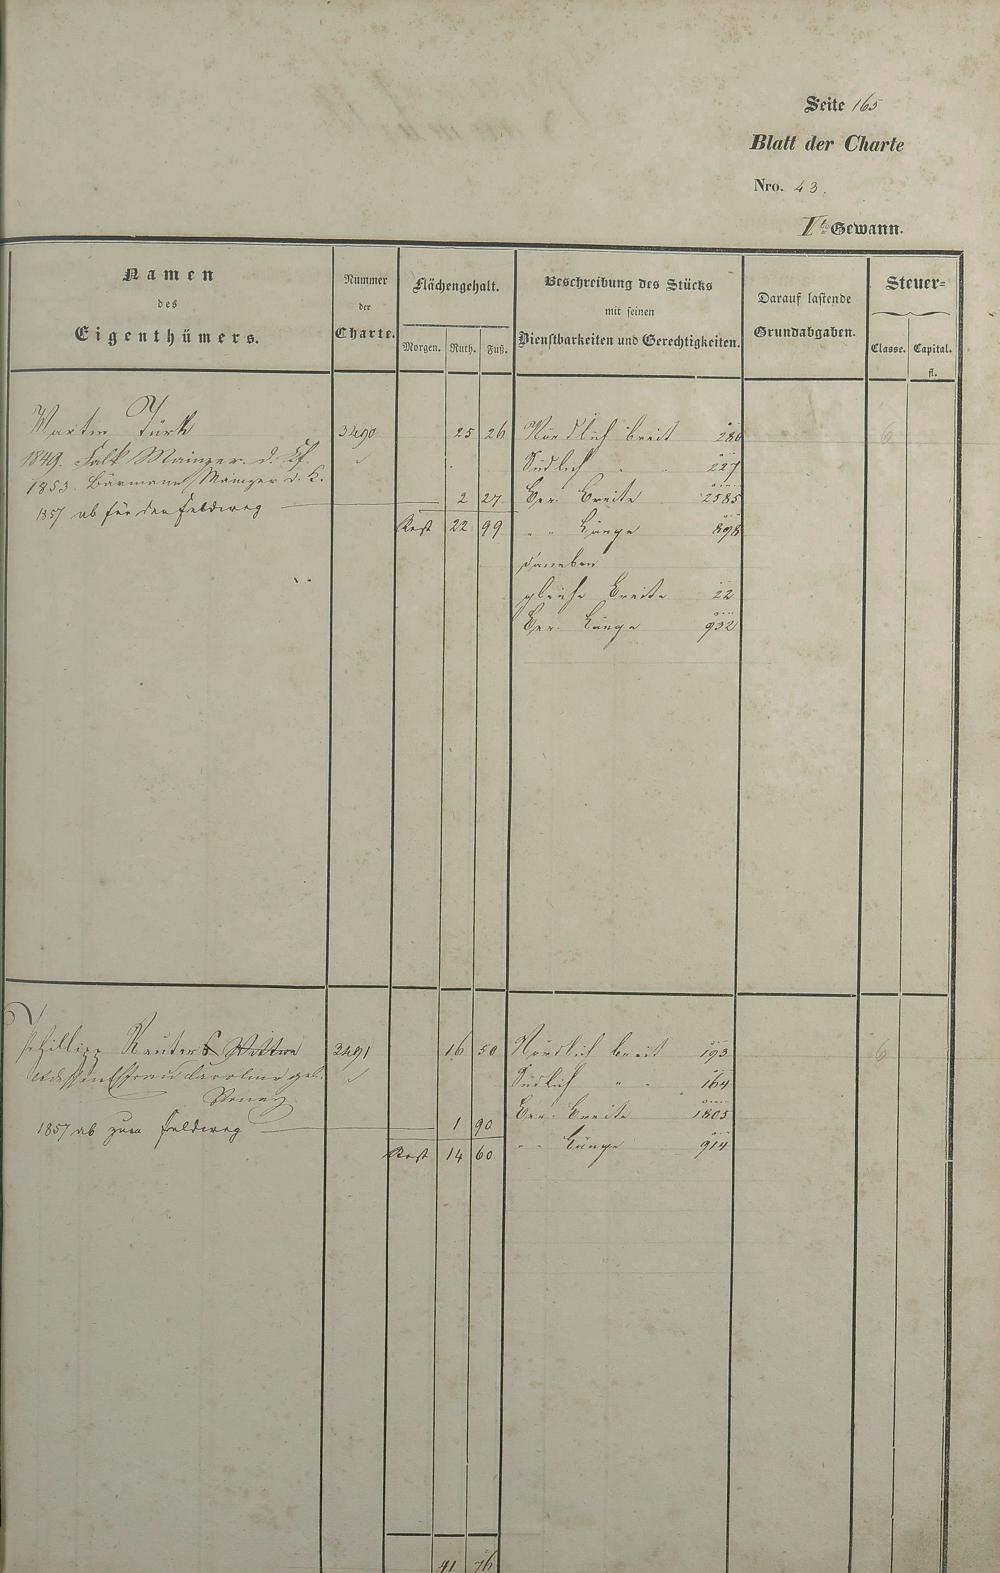 Seite 165
Blatt der Charte
Nro. 43.
Gewann.
Namen
des
Eigenthümers.
Nummer
der
Charte.
Flächengehalt.
Morgen. Ruth. Fuß.
Beschreibung des Stücks
mit seinen
Dienstbarkeiten und Gerechtigkeiten.
Darauf lastende
Grundabgaben.
Steuer=
Classe. Capital.
fl.
Martin Türk 3490 25 26 Nördlich breit 280 6
1849. Falk Mainzer d. Südlich " " 227
1853. Bärmann Mainzer d. K.
1857 ab für den Feldweg 2 27 Ber. Breite 2585
Rest 22 99 " " Länge 898
daneben
gleiche Breite 22
Ber. Länge 932
Philipp Reuter's Wittwe 3491 16 50 Nördlich breit 193 6
dessen Ehefrau Caroline geb. Südlich " " 164
1857 ab zum Feldweg 1 90 Ber. Breite 1805
Rest 14 60 " " Länge 914
41 76